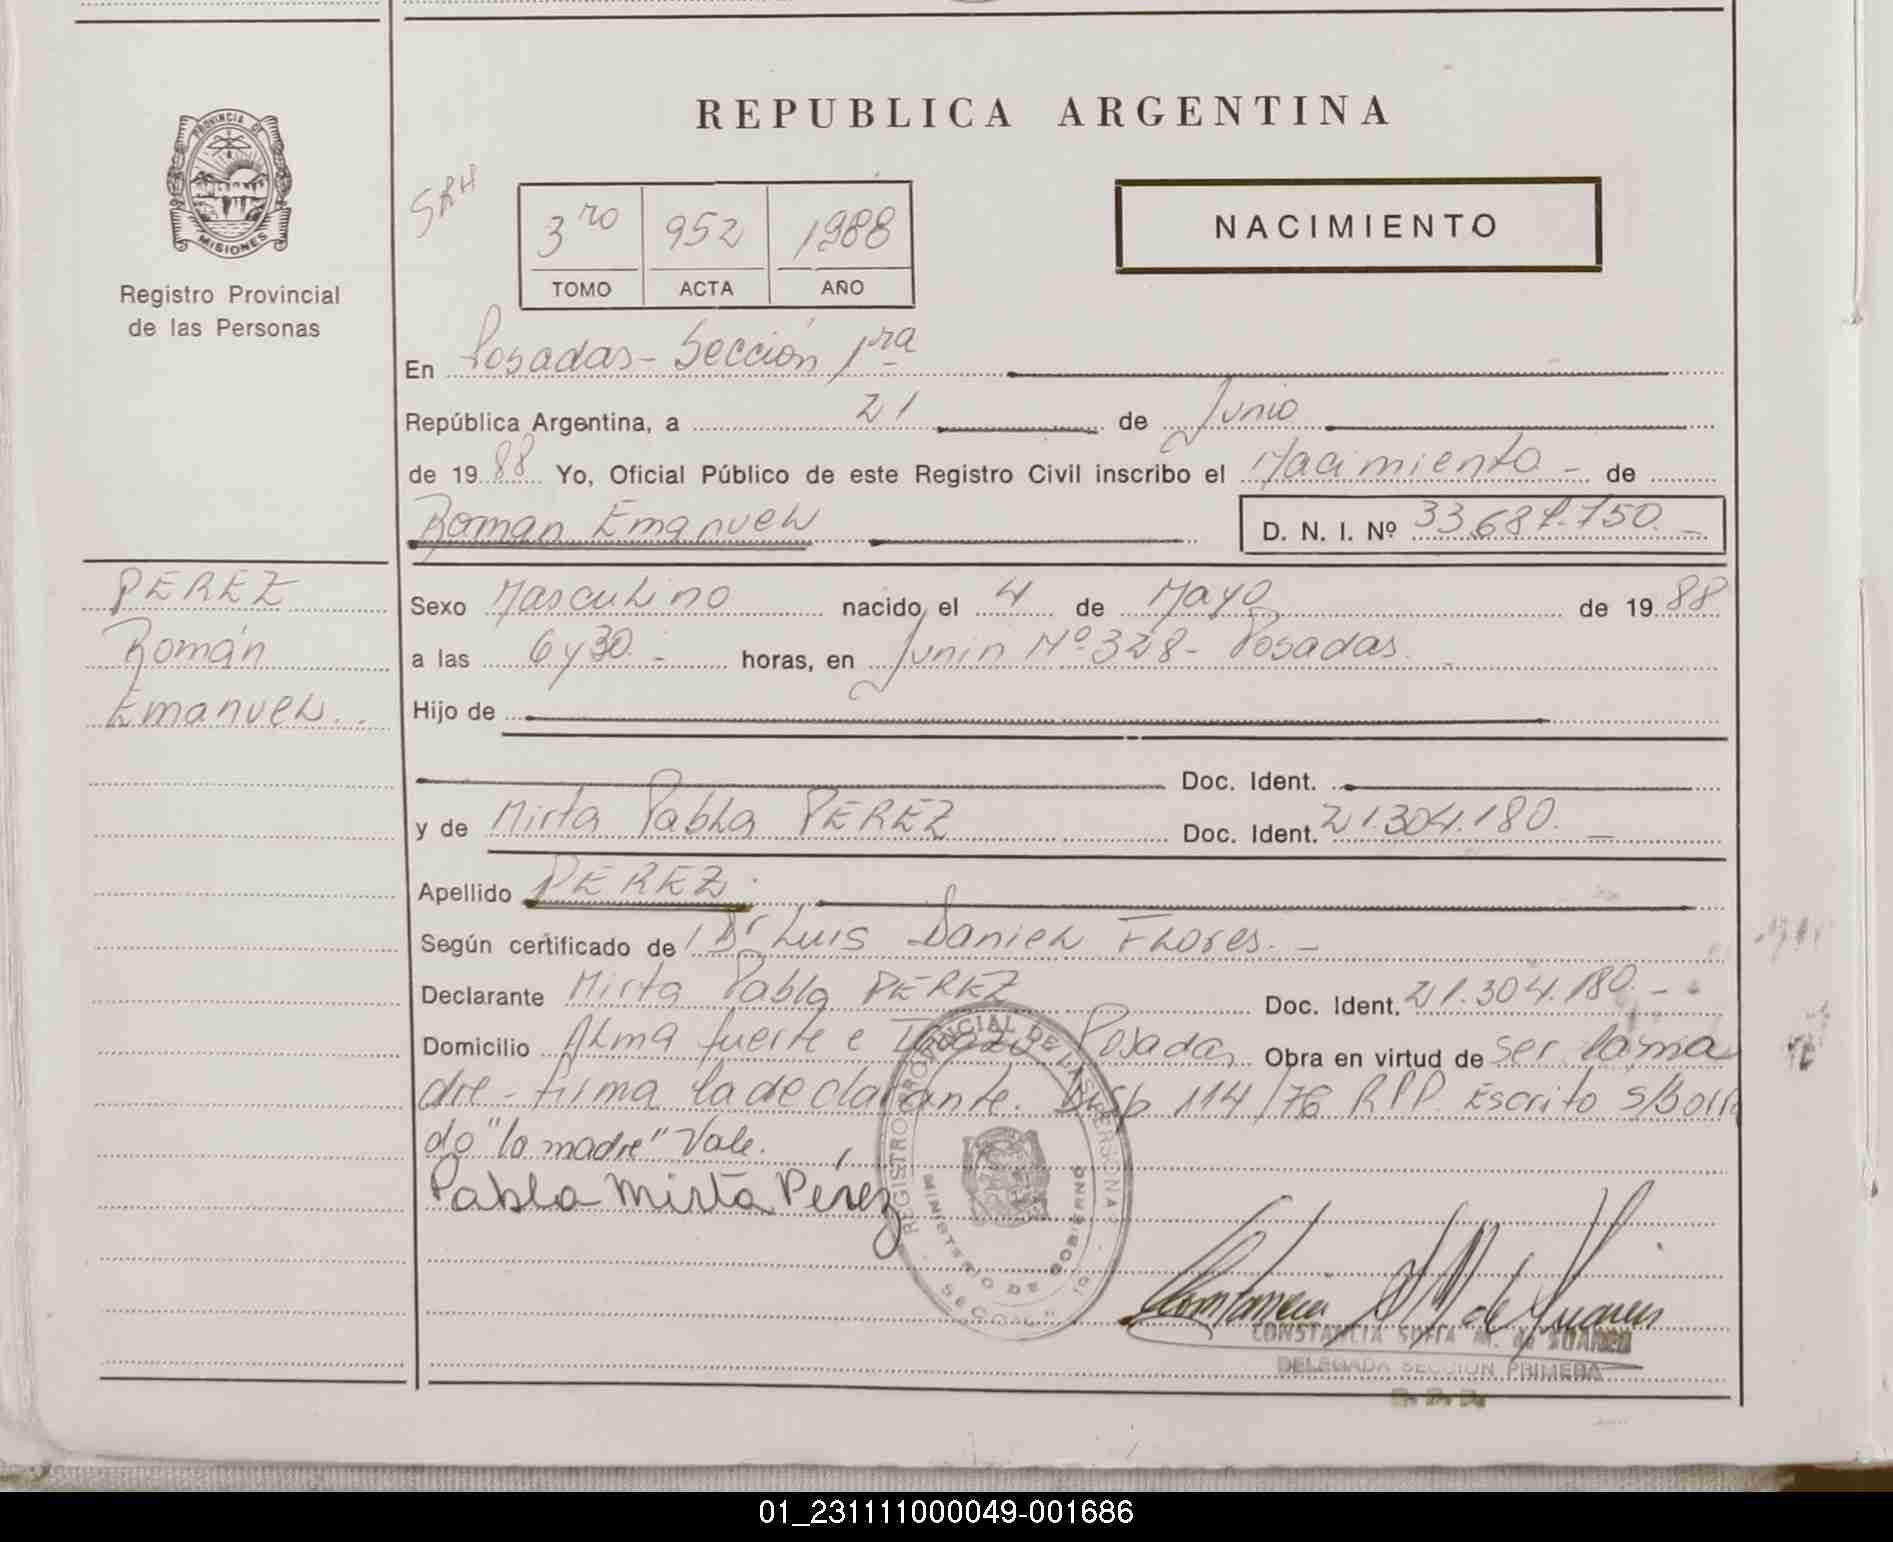 REPUBLICA ARGENTINA
PROVINCIA DE
MISIONES
Registro Provincial
de las Personas
SRH
3ro 952 1988
TOMO ACTA AÑO
NACIMIENTO
En Posadas - Sección 1ra
República Argentina, a 21 de Junio
de 1988 Yo, Oficial Público de este Registro Civil inscribo el Nacimiento - de
Roman Emanuel D. N. I. Nº 33.681.750. -
PEREZ
Román
Emanuel. -
Sexo Masculino nacido el 4 de Mayo de 1988
a las 6 y 30. - horas, en Junin Nº 328 - Posadas. -
Hijo de
Doc. Ident.
y de Mirta Pabla PEREZ Doc. Ident. 21.304.180. -
Apellido PEREZ.
Según certificado de Dr Luis Daniel Flores. -
Declarante Mirta Pabla PEREZ Doc. Ident. 21.304.180. -
Domicilio Alma fuerte e Posadas Obra en virtud de ser la ma
dre - firma la declarante. Disp 114/76 RPP. Escrito s/Borra
do "la madre" Vale.
Pabla Mirta Pérez
REGISTRO PROVINCIAL DE LAS PERSONAS
MINISTERIO DE GOBIERNO
Constancia S M de Juarez
CONSTANCIA SOFIA M. de JUAREZ
DELEGADA SECCION PRIMERA
01_231111000049-001686